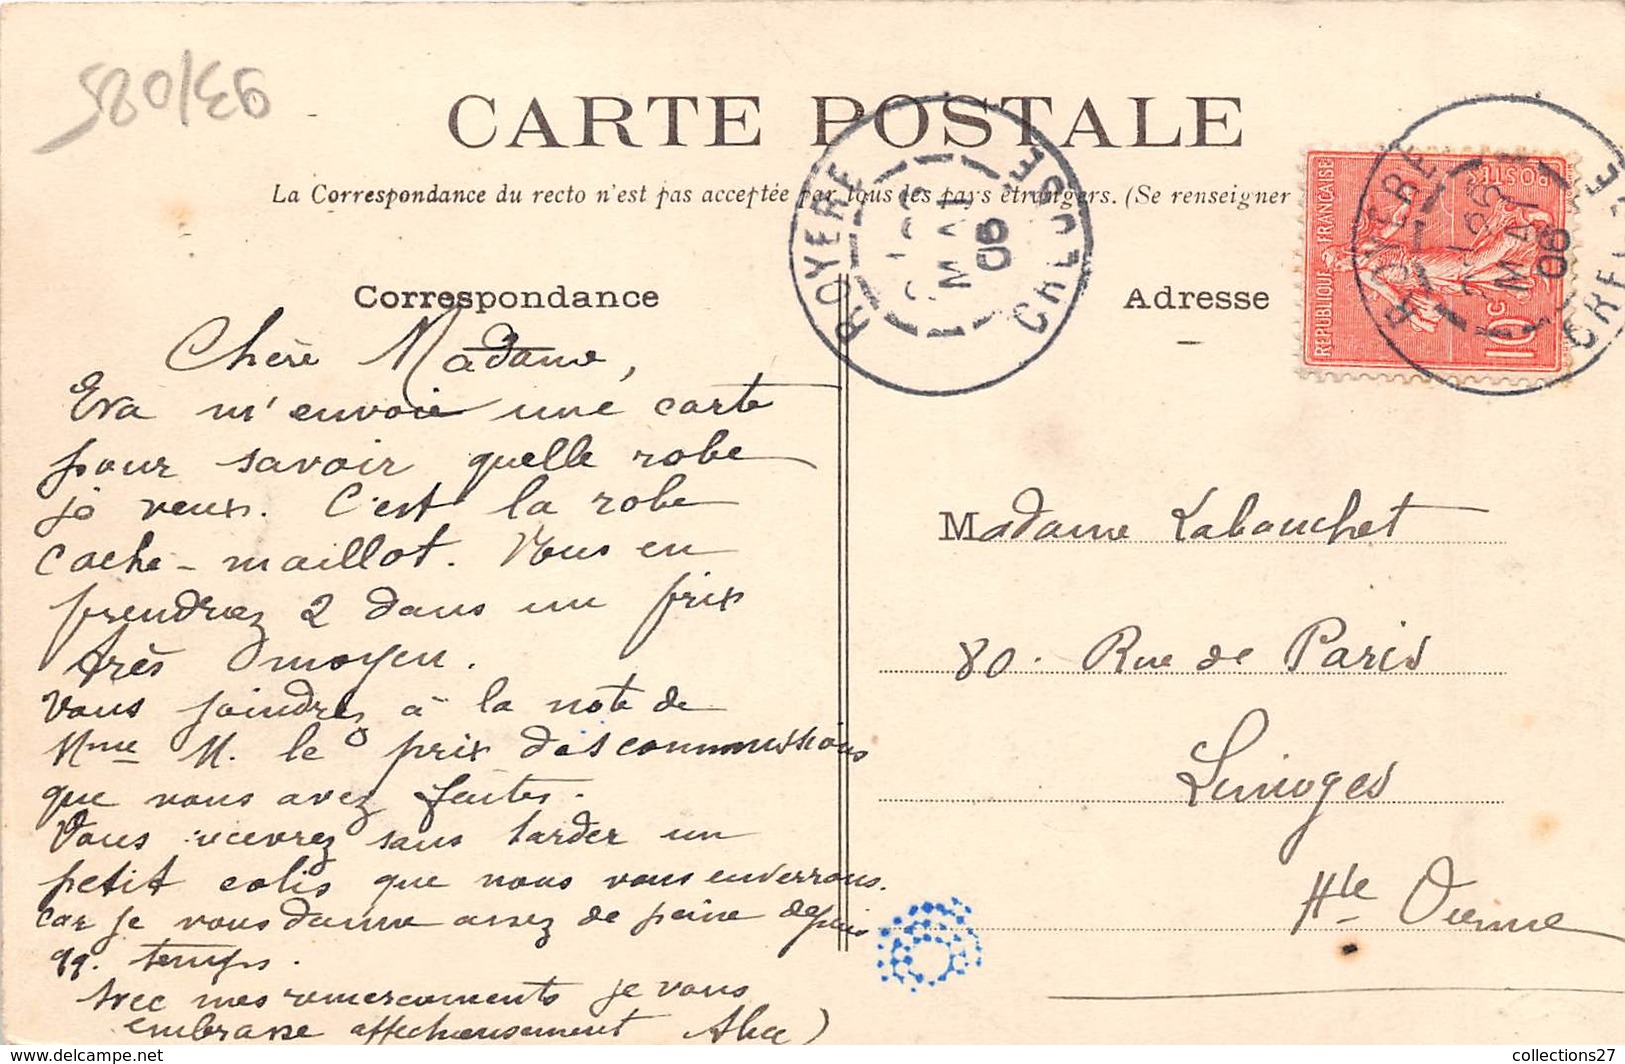 580/EB
CARTE POSTALE
La Correspondance du recto n'est pas acceptée par tous les pays étrangers. (Se renseigner
Correspondance
Adresse
ROYERE
MAI
06
CREUSE
REPUBLIQUE FRANÇAISE
POSTES
10 c
ROYERE
MAI
06
CREUSE
Chère Madame,
Eva m'envoie une carte
pour savoir quelle robe
je veux. C'est la robe
cache-maillot. Vous en
prendrez 2 dans un prix
très moyen.
Vous joindrez à la note de
Mme M. le prix des commissions
que vous avez faites.
Vous recevrez sans tarder un
petit colis que nous vous enverrons.
car je vous donne assez de peine depuis
qq. temps.
Avec mes remerciements je vous
embrasse affectueusement Alice
Madame Labouchet
80. Rue de Paris
Limoges
Hte Vienne
collections27